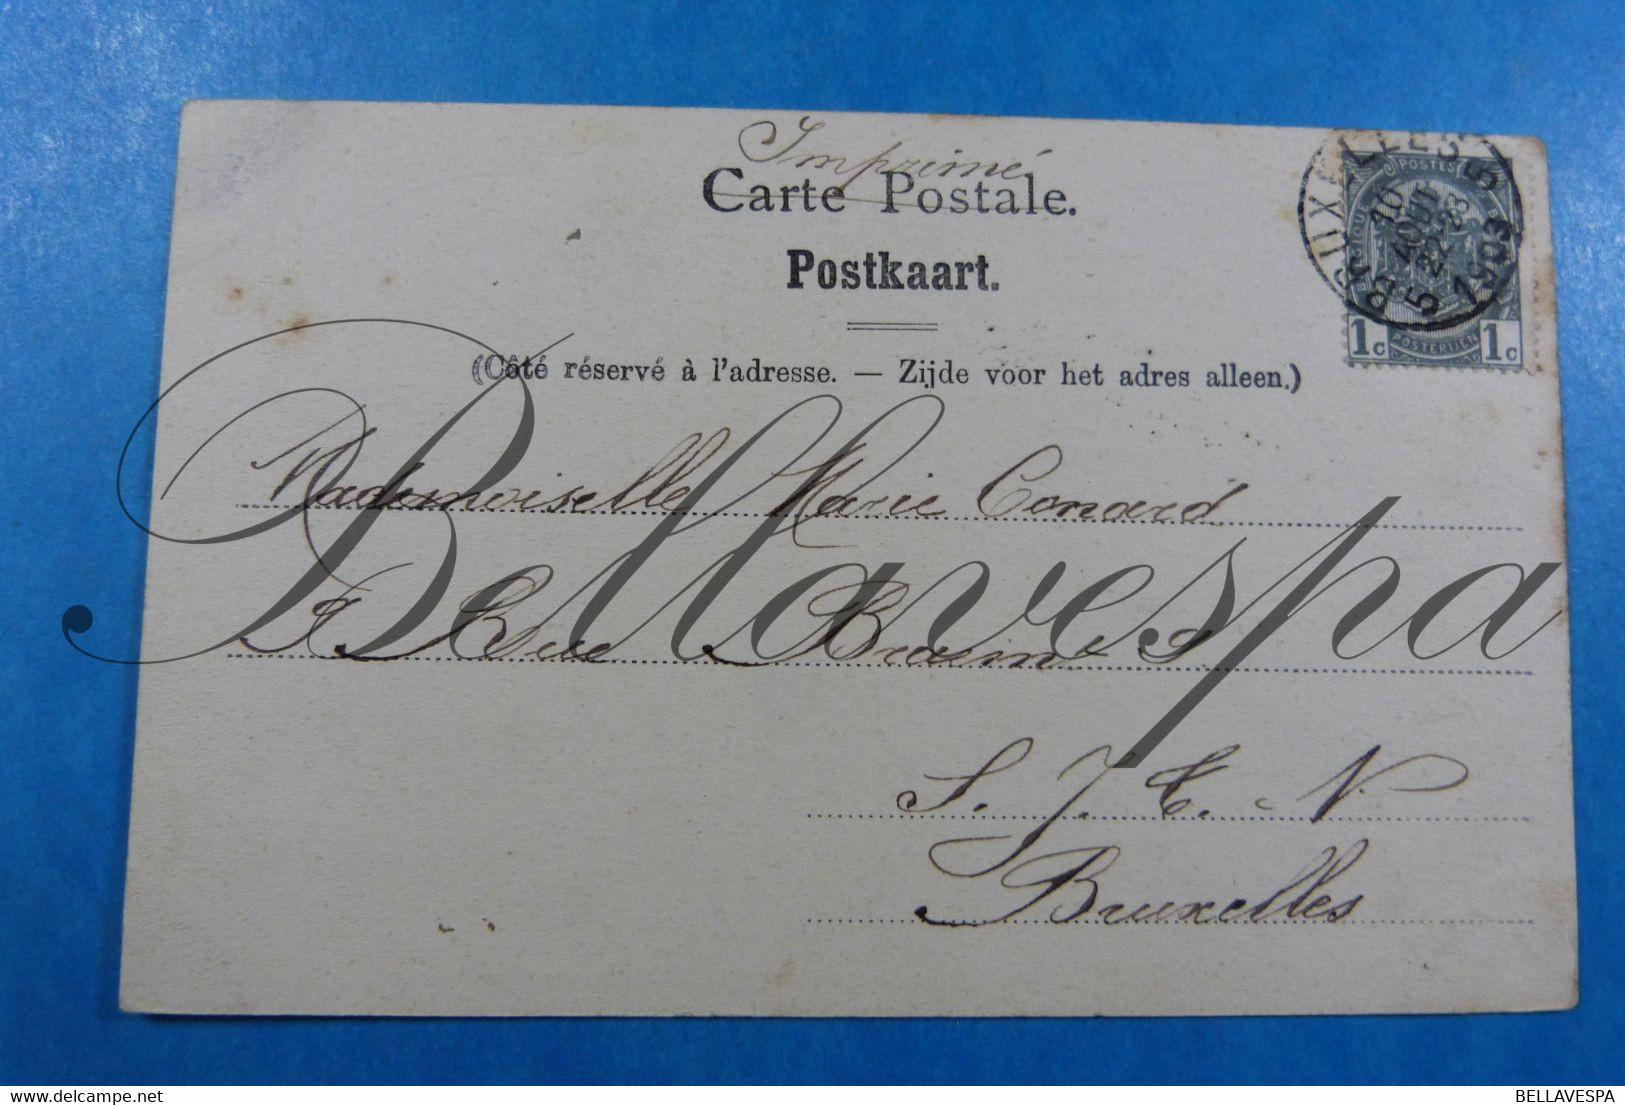 Imprimé
Carte Postale.
Postkaart.
(Côté réservé à l'adresse. — Zijde voor het adres alleen.)
BRUXELLES 5
10
AOUT
22-23
1903
5
POSTES
BELGIQUE
1c POSTERIJEN 1c
Mademoiselle Marie Conard
Rue
S. J. T. N.
Bruxelles
Bellavespa
delcampe.net
BELLAVESPA